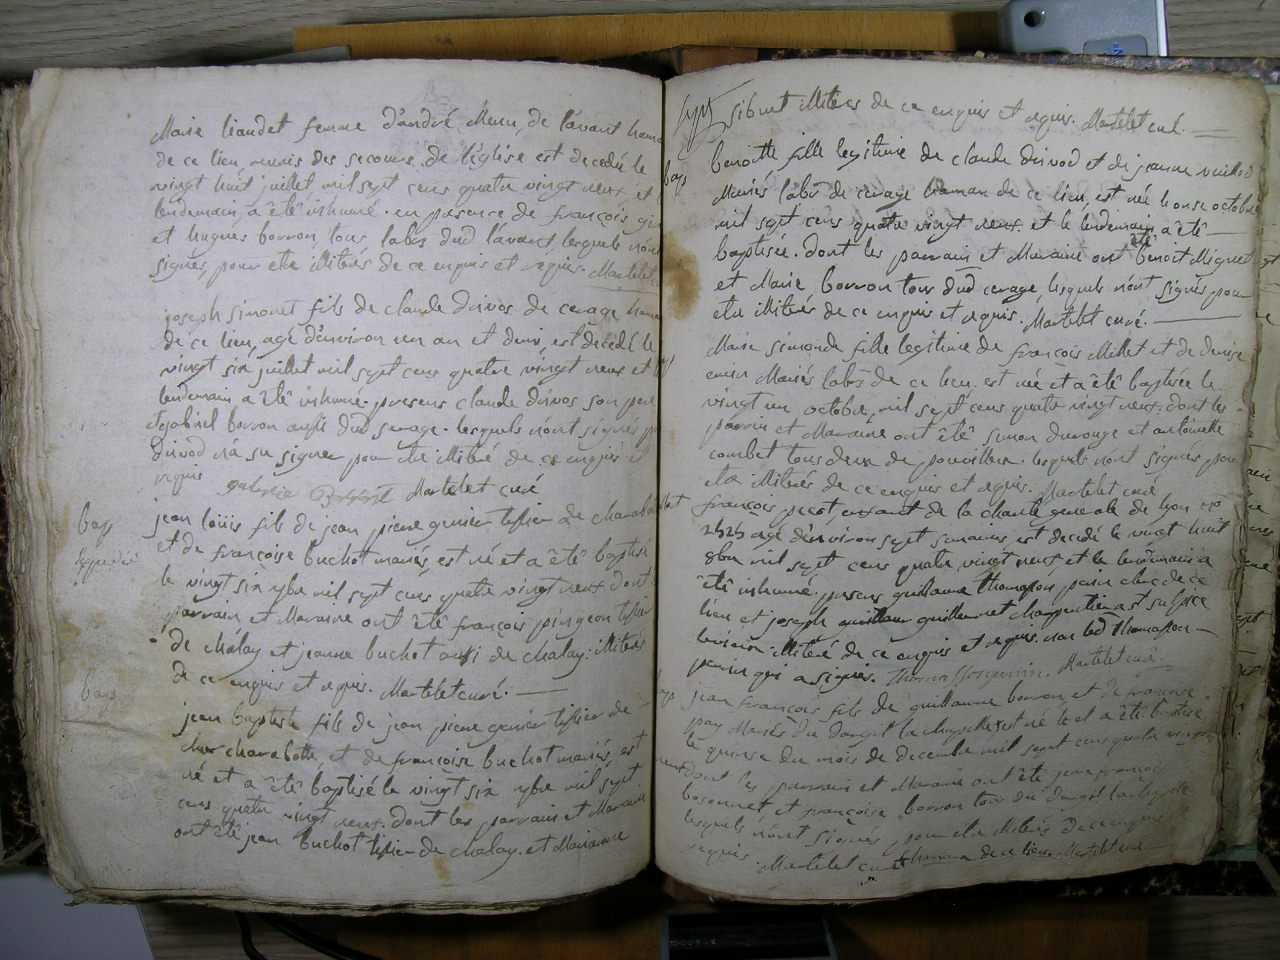 Marie liaudet femme d'andré Menu, de lavant hamau
de ce lieu munis des secours de l'église est decedée le
vingt huit juillet mil sept cens quatre vingt neuf et
lendemain a été inhumé. en presence de françois
et hugues borron tous labrs dud lavant, lesquels n'ont
signés pour etre illitérés de ce enquis et requis. Martelet
joseph simonet fils de claude drivos de cerage hamau
de ce lieu, agé d'environ un an et demi, est decédé le
vingt six juillet mil sept cens quatre vingt neuf et
lendemain a été inhumé. presens claude drivos son pere
et gabriel borron aussi dud serage. lesquels n'ont signés
drivod n'a su signer pour etre illitéré de ce enquis et
requis Martelet curé
bap
jean loüis fils de jean piere genier tissier de charabotte
expedié
et de françoise buchot mariés est né et a été baptisé
le vingt six 9bre mil sept cens quatre vingt neuf. dont
parrain et Maraine ont été françois poingeon tissier
de chaley et jeanne buchot aussi de chaley: illitérés
de ce enquis et requis. Martelet curé.
bap
jean baptiste fils de jean piere genier tissier de
charabotte et de françoise buchot mariés, est
né et a été baptisé le vingt six 9bre mil sept
cens quatre vingt neuf. dont les parrain et Maraine
ont été jean buchot tissier de chaley. et Marianne
sibuet illitéres de ce enquis et requis. Martelet curé.
bap
benoitte fille legitime de claude drivod et de jeanne
Mariés labrs de cerage hamau de ce lieu, est née le onse octobre
mil sept cens quatre vingt neuf. et le lendemain a été
baptisée. dont les parrain et Maraine ont été benoit Mignet
et Marie borron tous dud cerage, lesquels n'ont signés pour
etre illitérés de ce enquis et requis. Martelet curé.
Marie simonde fille legitime de françois Millet et de denise
Mariés labrs de ce lieu. est née et a été baptisée le
vingt un octobre, mil sept cens quatre vingt neuf. dont les
parrain et Maraine ont été simon durouge et antoinette
combet tous deux de. lesquels n'ont signés pour
etre illitérés de ce enquis et requis. Martelet curé
françois perot, enfant de la charité generale de lyon no
2424 agé d'environ sept semaines, est decedé le vingt huit
8bre mil sept cens quatre vingt neuf et le lendemain a
été inhumé. presens guillaume thomasson parin de ce
lieu et joseph guillermet charpentier a st sulpice
illitéré de ce enquis et requis. non led thomasson
parin qui a signés. Martelet curé.
bap
jean françois fils de guillaume borron, et de françoise
pay Mariés du dangit la chapelle est né et a été baptisé
le quinse du mois de decembre mil sept cens quatre vingt
neuf dont les parrain et Maraine ont été jean françois
bosonnet et françoise borron tous du dangit la chapelle
lesquels n'ont signés pour etre illitérés de ce enquis
requis. Martelet curé hamau de ce lieu. Martelet curé